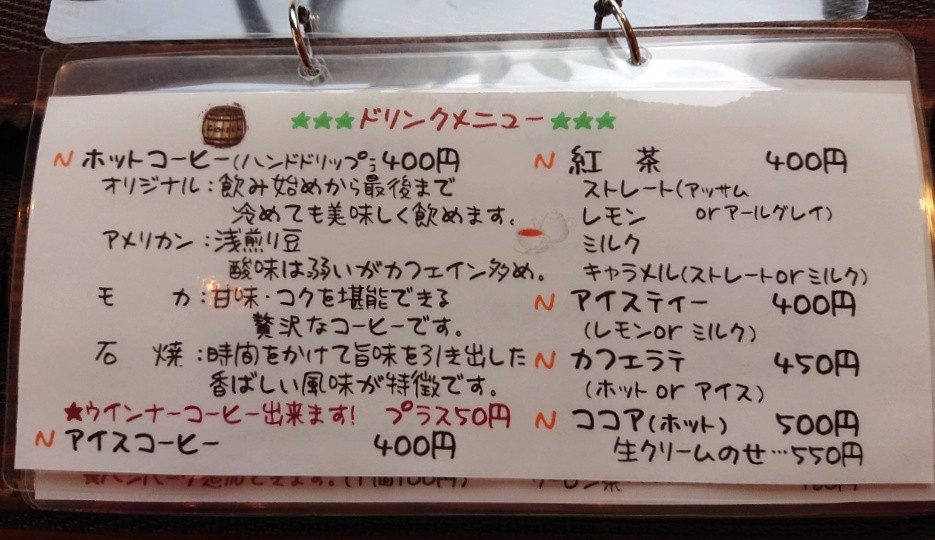 ★★★ドリンクメニュー★★★
N ホットコーヒー(ハンドドリップ) 400円
オリジナル：飲み始めから最後まで
冷めても美味しく飲めます。
アメリカン：浅煎り豆
酸味は弱いがカフェイン多め。
モカ：甘味・コクを堪能できる
贅沢なコーヒーです。
石焼：時間をかけて旨味を引き出した
香ばしい風味が特徴です。
★ウインナーコーヒー出来ます! プラス50円
N アイスコーヒー 400円
N 紅茶 400円
ストレート(アッサム
orアールグレイ)
レモン
ミルク
キャラメル(ストレートorミルク)
N アイスティー 400円
(レモンor ミルク)
N カフェラテ 450円
(ホット or アイス)
N ココア(ホット) 500円
生クリームのせ…550円